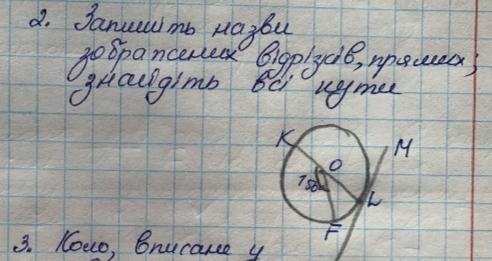 2. Запишіть назви
зображених відрізків, прямих;
знайдіть всі кути
K
O
M
L
F
3. Коло, вписане у